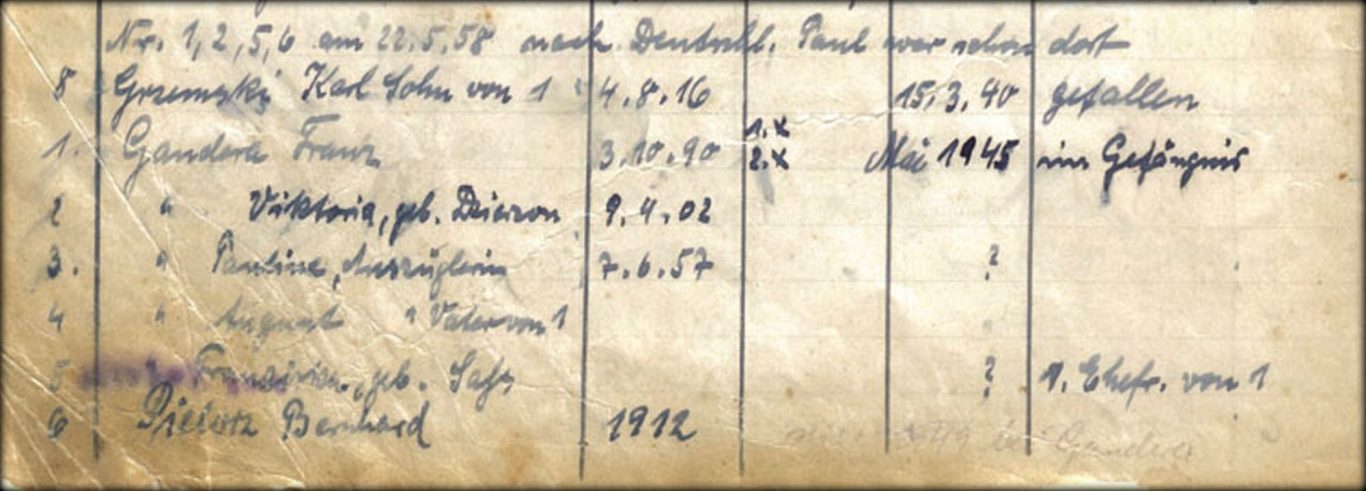 Nr. 1,2,5,6 am 22.5.58 nach Deutschl. Paul war schon dort
8 Grzemski Karl Sohn von 1 4.8.16 15.3.40 gefallen
1. Gandera Franz 3.10.90 1.x 2.x Mai 1945 im Gefängnis
2 " Viktoria, geb. Dzierzon 9.4.02
3. " Pauline, Auszüglerin 7.6.57 ?
4 " August " Vater von 1
5 geb. ? 1. Ehefr. von 1
6 Bernhard 1912 bei Gandera